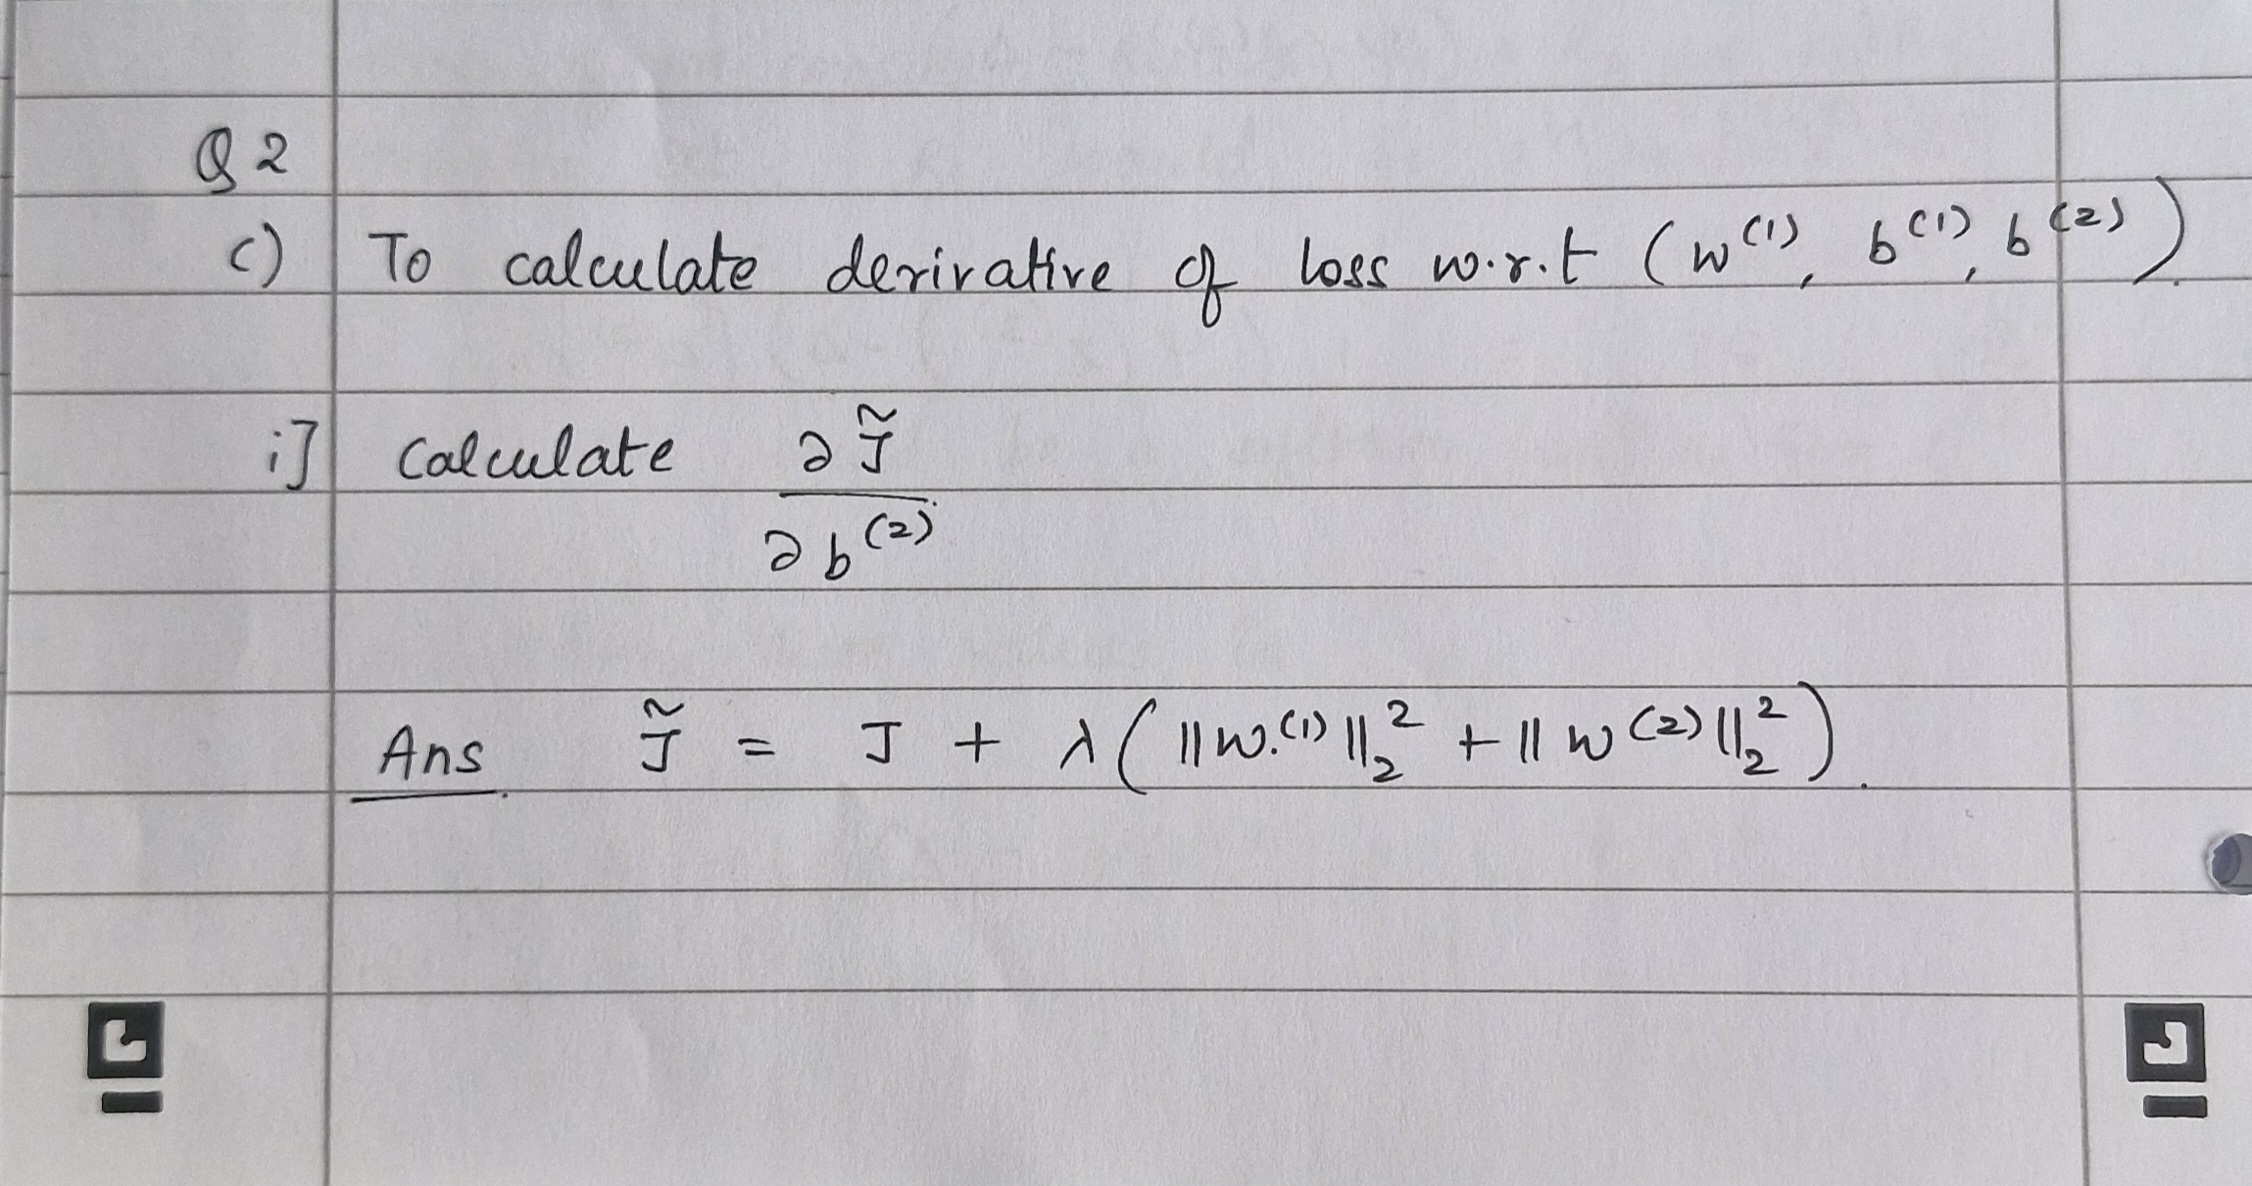 Q 2
c) To calculate derivative of loss w.r.t (w⁽¹⁾, b⁽¹⁾, b⁽²⁾).
i] Calculate ∂J̃
∂b⁽²⁾
Ans. J̃ = J + λ(||w.⁽¹⁾||₂² + ||w⁽²⁾||₂²).